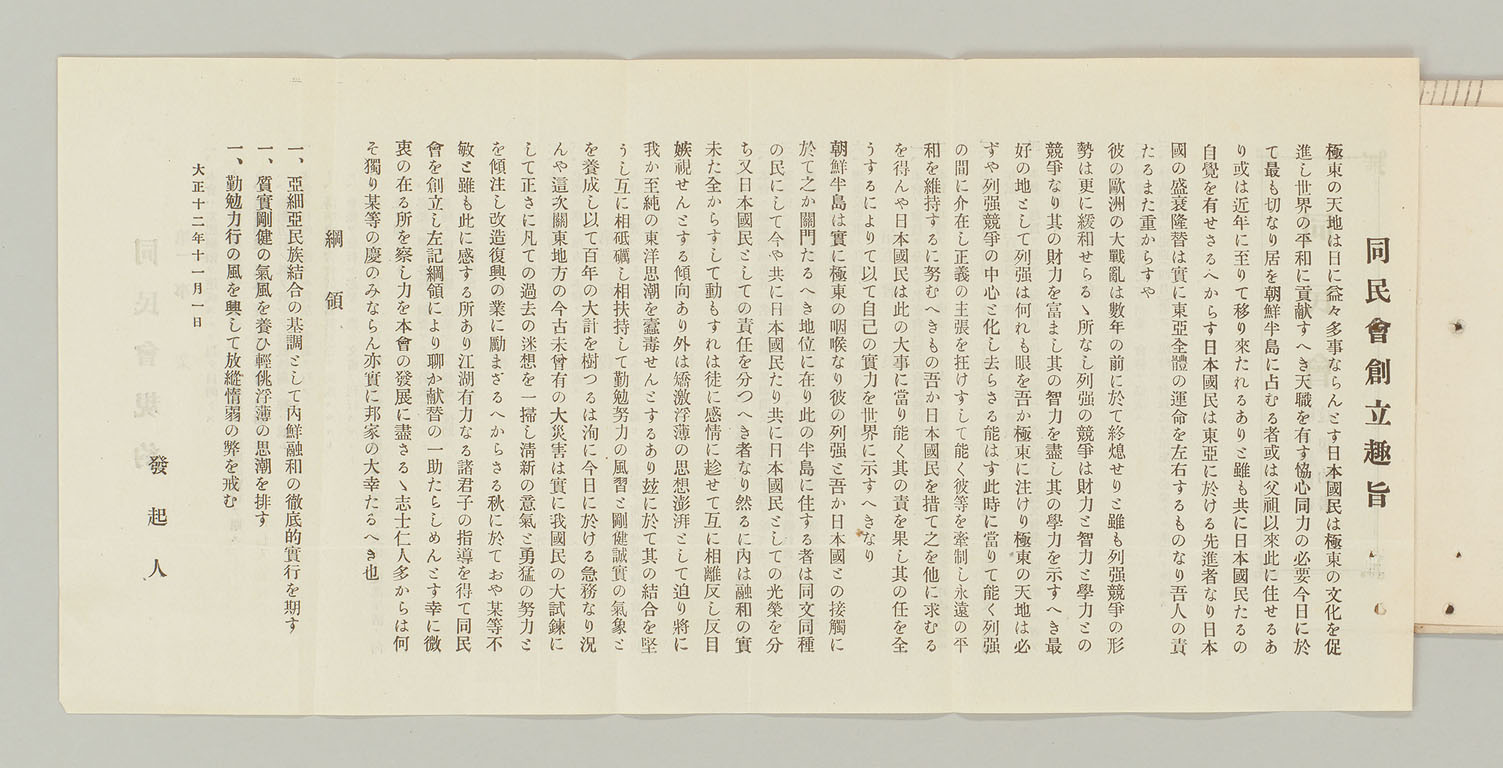 同民會創立趣旨
極東の天地は日に益々多事ならんとす日本國民は極東の文化を促
進し世界の平和に貢献すへき天職を有す恊心同力の必要今日に於
て最も切なり居を朝鮮半島に占むる者或は父祖以來此に住せるあ
り或は近年に至りて移り來たれるありと雖も共に日本國民たるの
自覺を有せさるへからす日本國民は東亞に於ける先進者なり日本
國の盛衰隆替は實に東亞全體の運命を左右するものなり吾人の責
たるまた重からすや
彼の歐洲の大戰亂は數年の前に於て終熄せりと雖も列强競爭の形
勢は更に緩和せらるゝ所なし列强の競爭は財力と智力と學力との
競爭なり其の財力を富まし其の智力を盡し其の學力を示すへき最
好の地として列强は何れも眼を吾か極東に注けり極東の天地は必
すや列强競爭の中心と化し去らさる能はす此時に當りて能く列强
の間に介在し正義の主張を抂けすして能く彼等を牽制し永遠の平
和を維持するに努むへきもの吾か日本國民を措て之を他に求むる
を得んや日本國民は此の大事に當り能く其の責を果し其の任を全
うするによりて以て自己の實力を世界に示すへきなり
朝鮮半島は實に極東の咽喉なり彼の列强と吾か日本國との接觸に
於て之か關門たるへき地位に在り此の半島に住する者は同文同種
の民にして今や共に日本國民たり共に日本國民としての光榮を分
ち又日本國民としての責任を分つへき者なり然るに內は融和の實
未た全からすして動もすれは徒に感情に趁せて互に相離反し反目
嫉視せんとする傾向あり外は矯激浮薄の思想澎湃として迫り將に
我か至純の東洋思潮を蠧毒せんとするあり玆に於て其の結合を堅
うし互に相砥礪し相扶持して勤勉努力の風習と剛健誠實の氣象と
を養成し以て百年の大計を樹つるは洵に今日に於ける急務なり況
んや這次關東地方の今古未曾有の大災害は實に我國民の大試鍊に
して正さに凡ての過去の迷想を一掃し淸新の意氣と勇猛の努力と
を傾注し改造復興の業に勵まざるへからさる秋に於ておや某等不
敏と雖も此に感する所あり江湖有力なる諸君子の指導を得て同民
會を創立し左記綱領により聊か献替の一助たらしめんとす幸に微
衷の在る所を察し力を本會の發展に盡さるゝ志士仁人多からは何
そ獨り某等の慶のみならん亦實に邦家の大幸たるへき也
綱領
一、亞細亞民族結合の基調として內鮮融和の徹底的實行を期す
一、質實剛健の氣風を養ひ輕佻浮薄の思潮を排す
一、勤勉力行の風を興して放縱惰弱の弊を戒む
大正十二年十一月一日
發起人